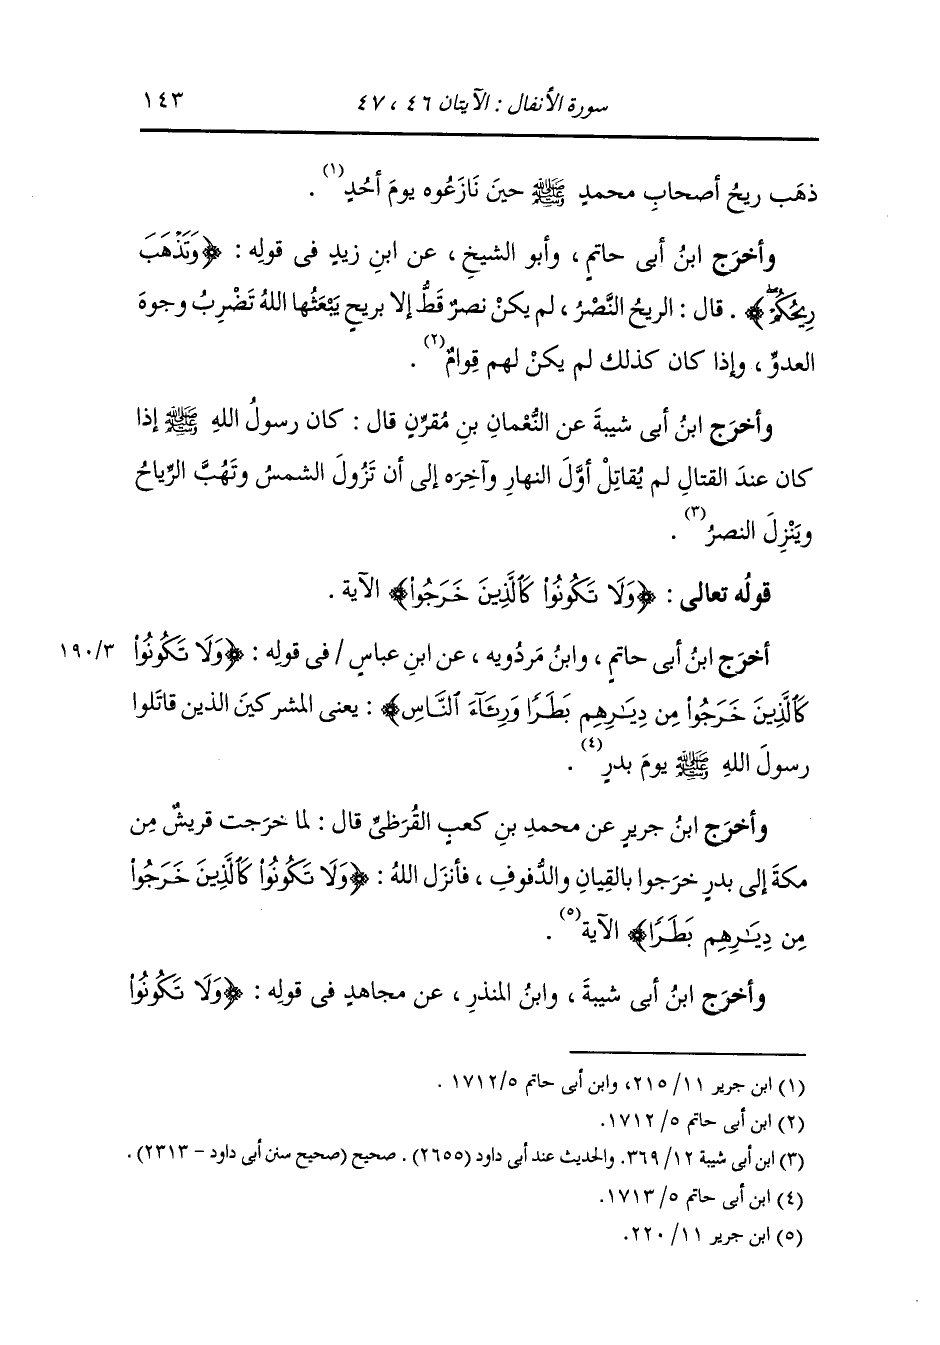 سورة الأنفال : الآيتان ٤٦ ، ٤٧ ١٤٣
ذهَب ريحُ أصحابِ محمدٍ ﷺ حينَ نَازَعُوه يومَ أُحُدٍ(١) .
وأخرَج ابنُ أبى حاتمٍ ، وأبو الشيخِ ، عن ابنِ زيدٍ فى قولِه : ﴿وَتَذْهَبَ
رِيحُكُمْۖ﴾ . قال : الريحُ النَّصْرُ ، لم يكنْ نصرٌ قَطُّ إلا بريحٍ يَبْعَثُها اللهُ تَضْرِبُ وجوهَ
العدوِّ ، وإذا كان كذلك لم يكنْ لهم قِوامٌ(٢) .
وأخرَج ابنُ أبى شيبةَ عن النُّعْمانِ بنِ مُقرِّنٍ قال : كان رسولُ اللهِ ﷺ إذا
كان عندَ القتالِ لم يُقاتِلْ أوَّلَ النهارِ وآخِرَه إلى أن تَزُولَ الشمسُ وتَهُبَّ الرِّياحُ
ويَنْزِلَ النصرُ(٣) .
قولُه تعالى : ﴿وَلَا تَكُونُوا۟ كَٱلَّذِينَ خَرَجُوا۟﴾ الآية .
أخرَج ابنُ أبى حاتمٍ ، وابنُ مَردُويه ، عن ابنِ عباسٍ / فى قولِه : ﴿وَلَا تَكُونُوا۟ ١٩٠/٣
كَٱلَّذِينَ خَرَجُوا۟ مِن دِيَـٰرِهِم بَطَرًا وَرِئَآءَ ٱلنَّاسِ﴾ : يعنى المشركينَ الذين قاتَلوا
رسولَ اللهِ ﷺ يومَ بدرٍ(٤) .
وأخرَج ابنُ جريرٍ عن محمدِ بنِ كعبٍ القُرَظىِّ قال : لما خرَجت قريشٌ مِن
مكةَ إلى بدرٍ خرَجوا بالقِيانِ والدُّفوفِ ، فأنزَل اللهُ : ﴿وَلَا تَكُونُوا۟ كَٱلَّذِينَ خَرَجُوا۟
مِن دِيَـٰرِهِم بَطَرًا﴾ الآية(٥) .
وأخرَج ابنُ أبى شيبةَ ، وابنُ المنذرِ ، عن مجاهدٍ فى قولِه : ﴿وَلَا تَكُونُوا۟
(١) ابن جرير ١١/ ٢١٥، وابن أبى حاتم ١٧١٢/٥ .
(٢) ابن أبى حاتم ٥/ ١٧١٢.
(٣) ابن أبى شيبة ١٢/ ٣٦٩. والحديث عند أبى داود (٢٦٥٥) . صحيح (صحيح سنن أبى داود - ٢٣١٣) .
(٤) ابن أبى حاتم ٥/ ١٧١٣.
(٥) ابن جرير ١١/ ٢٢٠.